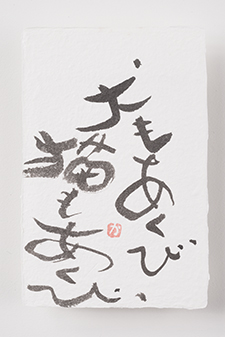 犬もあくび
猫もあくび
か